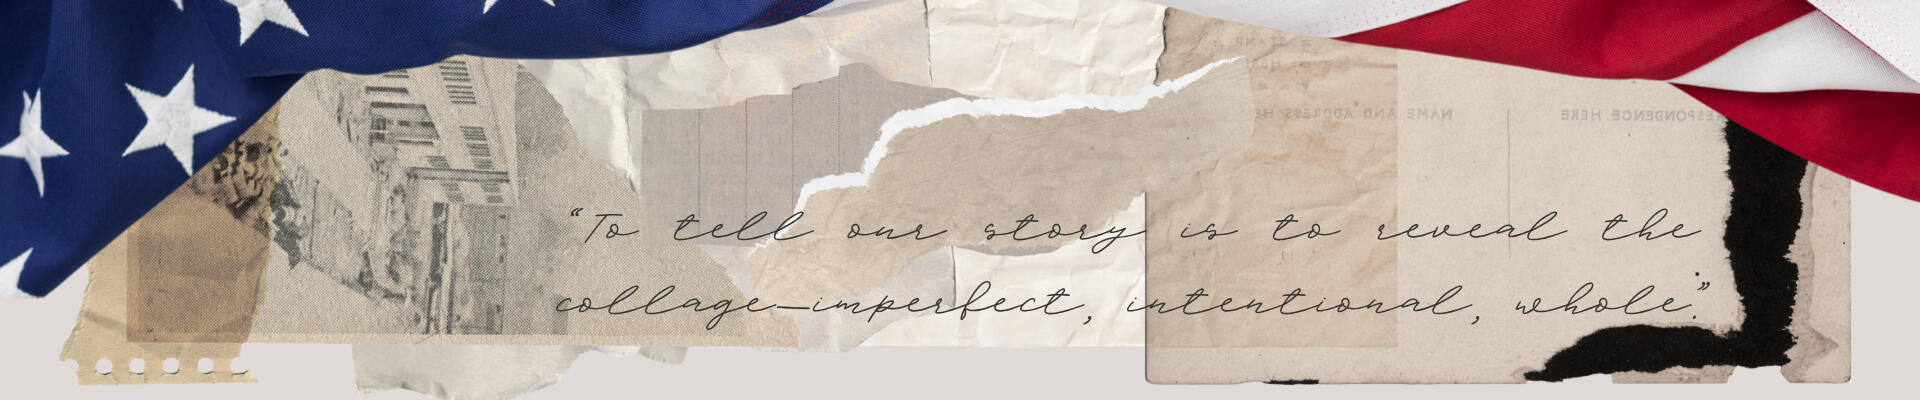 = STAMP =
NAME AND ADDRESS HERE
RESPONDENCE HERE
“To tell our story is to reveal the
collage—imperfect, intentional, whole.”